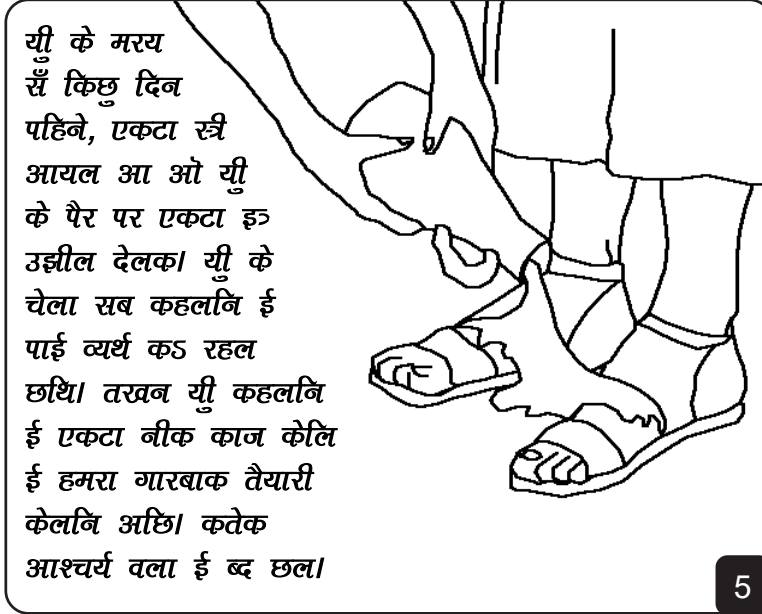 यीु के मरय
सँ किछु दिन
पहिने, एकटा स्त्री
आयल आ ओ यीु
के पैर पर एकटा इत्र
उझील देलक। यीु के
चेला सब कहलनि ई
पाई व्यर्थ कऽ रहल
छथि। तखन यीु कहलनि
ई एकटा नीक काज केलि
ई हमरा गारबाक तैयारी
केलनि अछि। कतेक
आश्चर्य वला ई ब्द छल।
5